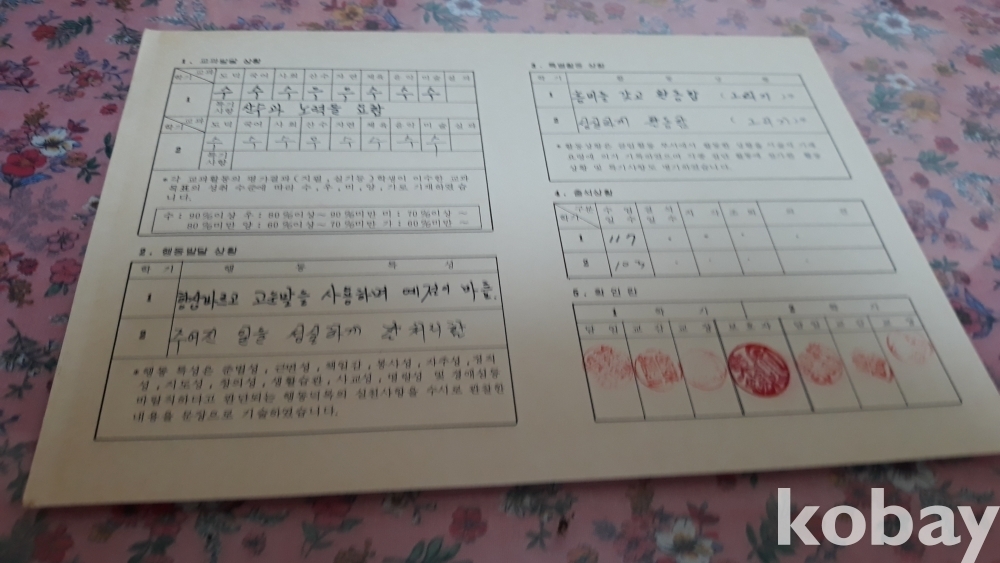 학기 교과 도덕 국어 사회 산수 자연 체육 음악 미술 실과
1 수 수 수 우 우 수 수 수
특기사항 산수과 노력을 요함
학기 교과 도덕 국어 사회 산수 자연 체육 음악 미술 실과
2 수 수 수 우 수 수 수 수
특기사항
*각 교과활동의 평가결과(지필, 실기등)학생이 이수한 교과
목표의 성취 수준에 따라 수, 우, 미, 양, 가로 기재하였습
니다.
수: 90%이상 우: 80%이상~ 90%미만 미: 70%이상~
80%미만 양: 60%이상~ 70%미만 가: 60%미만
2. 행동발달 상황
학기 행동특성
1 바르고 고운말을 사용하며 예절이 바름.
2 주어진 일을 성실하게 잘 처리함
*행동 특성은 준법성, 근면성, 책임감, 봉사성, 자주성, 정직
성, 지도성, 창의성, 생활습관, 사교성, 명랑성 및 정애심등
바람직하다고 판단되는 행동덕목의 실천사항을 수시로 관찰한
내용을 문장으로 기술하였습니다.
학기 활동 상황
1 흥미를 갖고 활동함
2 성실하게 활동함
4. 출석상황
학기 구분 수업일수
1 117
2 103
5. 확인란
1 학기 2 학기
담임 교감 교장 보호자 담임 교감 교장
kobay